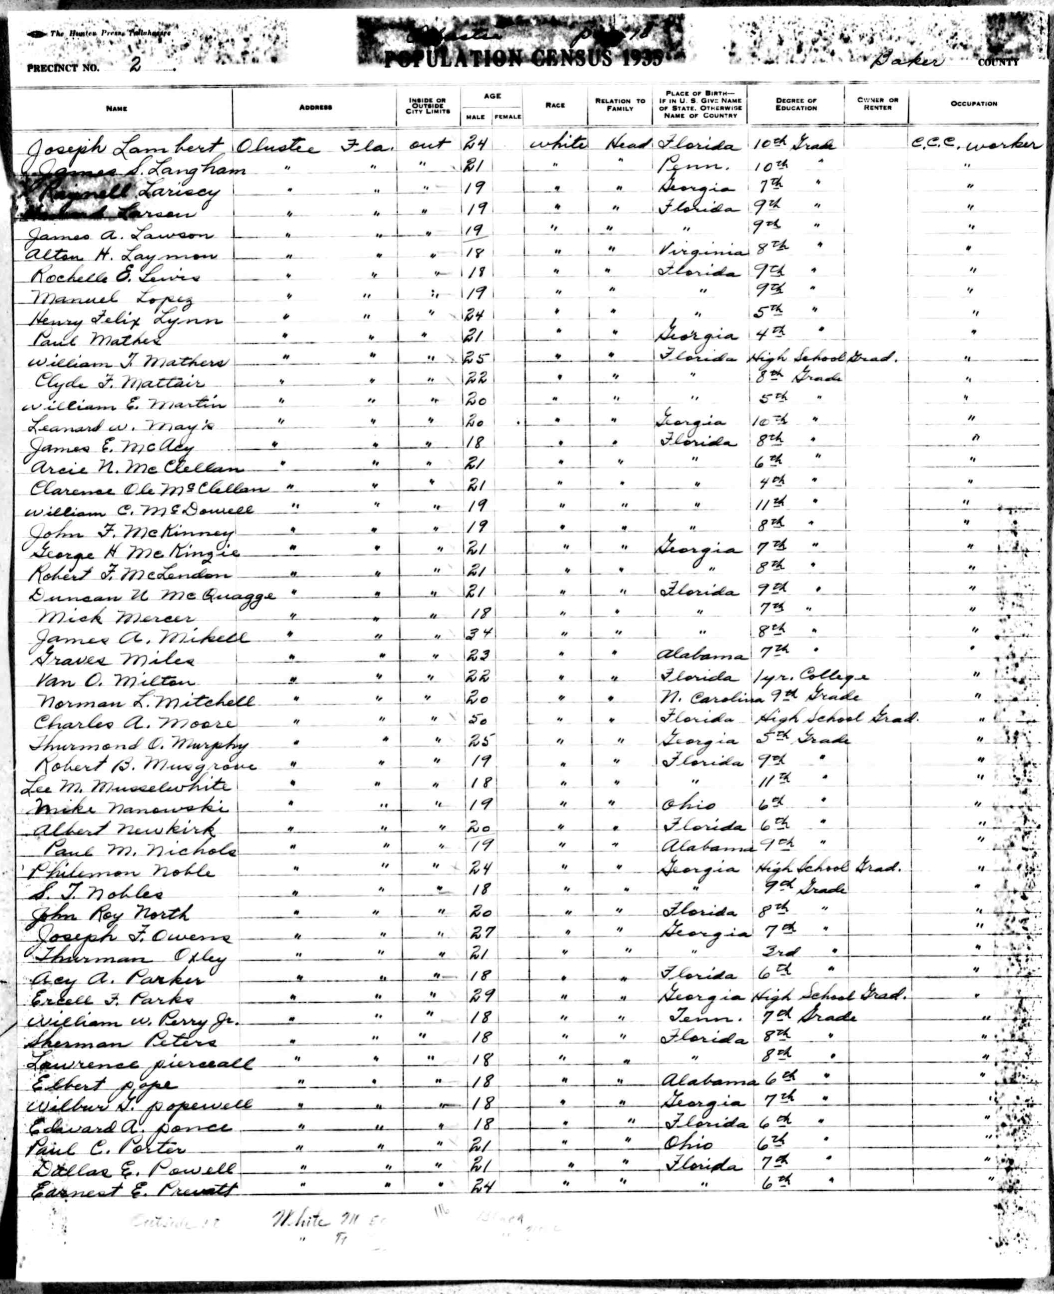 The Hunton Press Tallahassee
POPULATION CENSUS 1935
PRECINCT NO. 2 Baker COUNTY
NAME ADDRESS INSIDE OR OUTSIDE CITY LIMITS AGE MALE FEMALE RACE RELATION TO FAMILY PLACE OF BIRTH— IF IN U. S. GIVE NAME OF STATE, OTHERWISE NAME OF COUNTRY DEGREE OF EDUCATION OWNER OR RENTER OCCUPATION
Joseph Lambert Olustee Fla. out 24 white Head Florida 10th Grade C.C.C. worker
James S. Langham " " " 21 " " Penn. 10th " "
Lariscy " " " 19 " " Georgia 7th " "
Larsen " " " 19 " " Florida 9th " "
James A. Lawson " " " 19 " " " 9th " "
Alton H. Laymon " " " 18 " " Virginia 8th " "
Rochelle E. Lewis " " " 18 " " Florida 9th " "
Manuel Lopez " " " 19 " " " 9th " "
Henry Felix Lynn " " " 24 " " " 5th " "
Paul Mathes " " " 21 " " Georgia 4th " "
William T. Mathers " " " 25 " " Florida High School Grad. "
Clyde F. Mattair " " " 22 " " " 8th Grade "
William E. Martin " " " 20 " " " 5th " "
Leanard W. May's " " " 20 " " Georgia 10th " "
James E. McAcy " " " 18 " " Florida 8th " "
Arcie N. McClellan " " " 21 " " " 6th " "
Clarence Ole McClellan " " " 21 " " " 4th " "
William C. McDowell " " " 19 " " " 11th " "
John F. McKinney " " " 19 " " " 8th " "
George H McKinzie " " " 21 " " Georgia 7th " "
Robert F. McLendon " " " 21 " " " 8th " "
Duncan U McQuagge " " " 21 " " Florida 9th " "
Mick Mercer " " " 18 " " " 7th " "
James A. Mikell " " " 34 " " " 8th " "
Graves Miles " " " 23 " " Alabama 7th " "
Van O. Milton " " " 22 " " Florida 1yr. College "
Norman L. Mitchell " " " 20 " " N. Carolina 9th Grade "
Charles A. Moore " " " 50 " " Florida High School Grad. "
Thurmond O. Murphy " " " 25 " " Georgia 5th Grade "
Robert B. Musgrove " " " 19 " " Florida 9th " "
Lee M. Musselwhite " " " 18 " " " 11th " "
Mike Nanowski " " " 19 " " Ohio 6th " "
Albert Newkirk " " " 20 " " Florida 6th " "
Paul M. Nichols " " " 19 " " Alabama 9th " "
Philemon Noble " " " 24 " " Georgia High School Grad. "
S. T. Nobles " " " 18 " " " 9th Grade "
John Roy North " " " 20 " " Florida 8th " "
Joseph F. Owens " " " 27 " " Georgia 7th " "
Thurman Oxley " " " 21 " " " 3rd " "
Acy A. Parker " " " 18 " " Florida 6th " "
Ercell F. Parks " " " 29 " " Georgia High School Grad. "
William W. Perry Jr. " " " 18 " " Tenn. 7th Grade "
Sherman Peters " " " 18 " " Florida 8th " "
Lawrence pierceall " " " 18 " " " 8th " "
Elbert pope " " " 18 " " Alabama 6th " "
Wilbur G. popewell " " " 18 " " Georgia 7th " "
Edward A. ponce " " " 18 " " Florida 6th " "
Paul C. Porter " " " 21 " " Ohio 6th " "
Dallas E. Powell " " " 21 " " Florida 7th " "
Earnest E. Prevatt " " " 24 " " " 6th " "
Outside White M